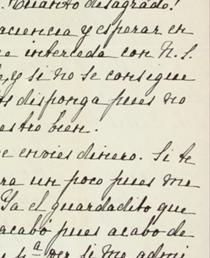 ¡Cuánto desagrado!
aciencia y esperar en
e interceda con N. S.
, y si no se consigue
disponga pues no
estro bien.
e envies dinero. Si te
ra un poco pues me
Ya el guardadito que
acabó pues acabo de
pª ver si me admi